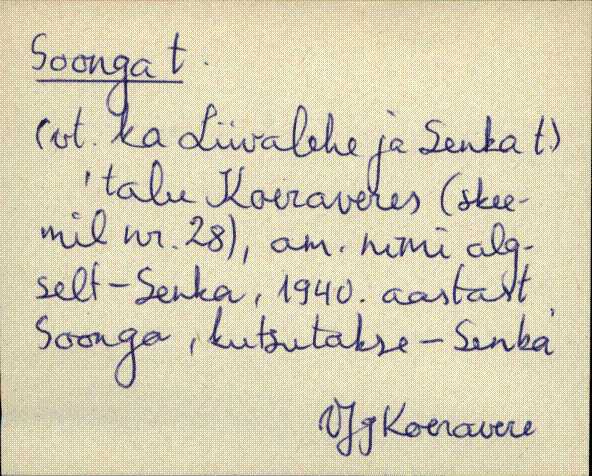 Soonga t.
(vt. ka Liivalehe ja Senka t.)
'talu Koeraveres (skee-
mil nr. 28), am. nimi alg-
selt – Senka, 1940. aastast
Soonga, kutsutakse – Senka'
VJg Koeravere